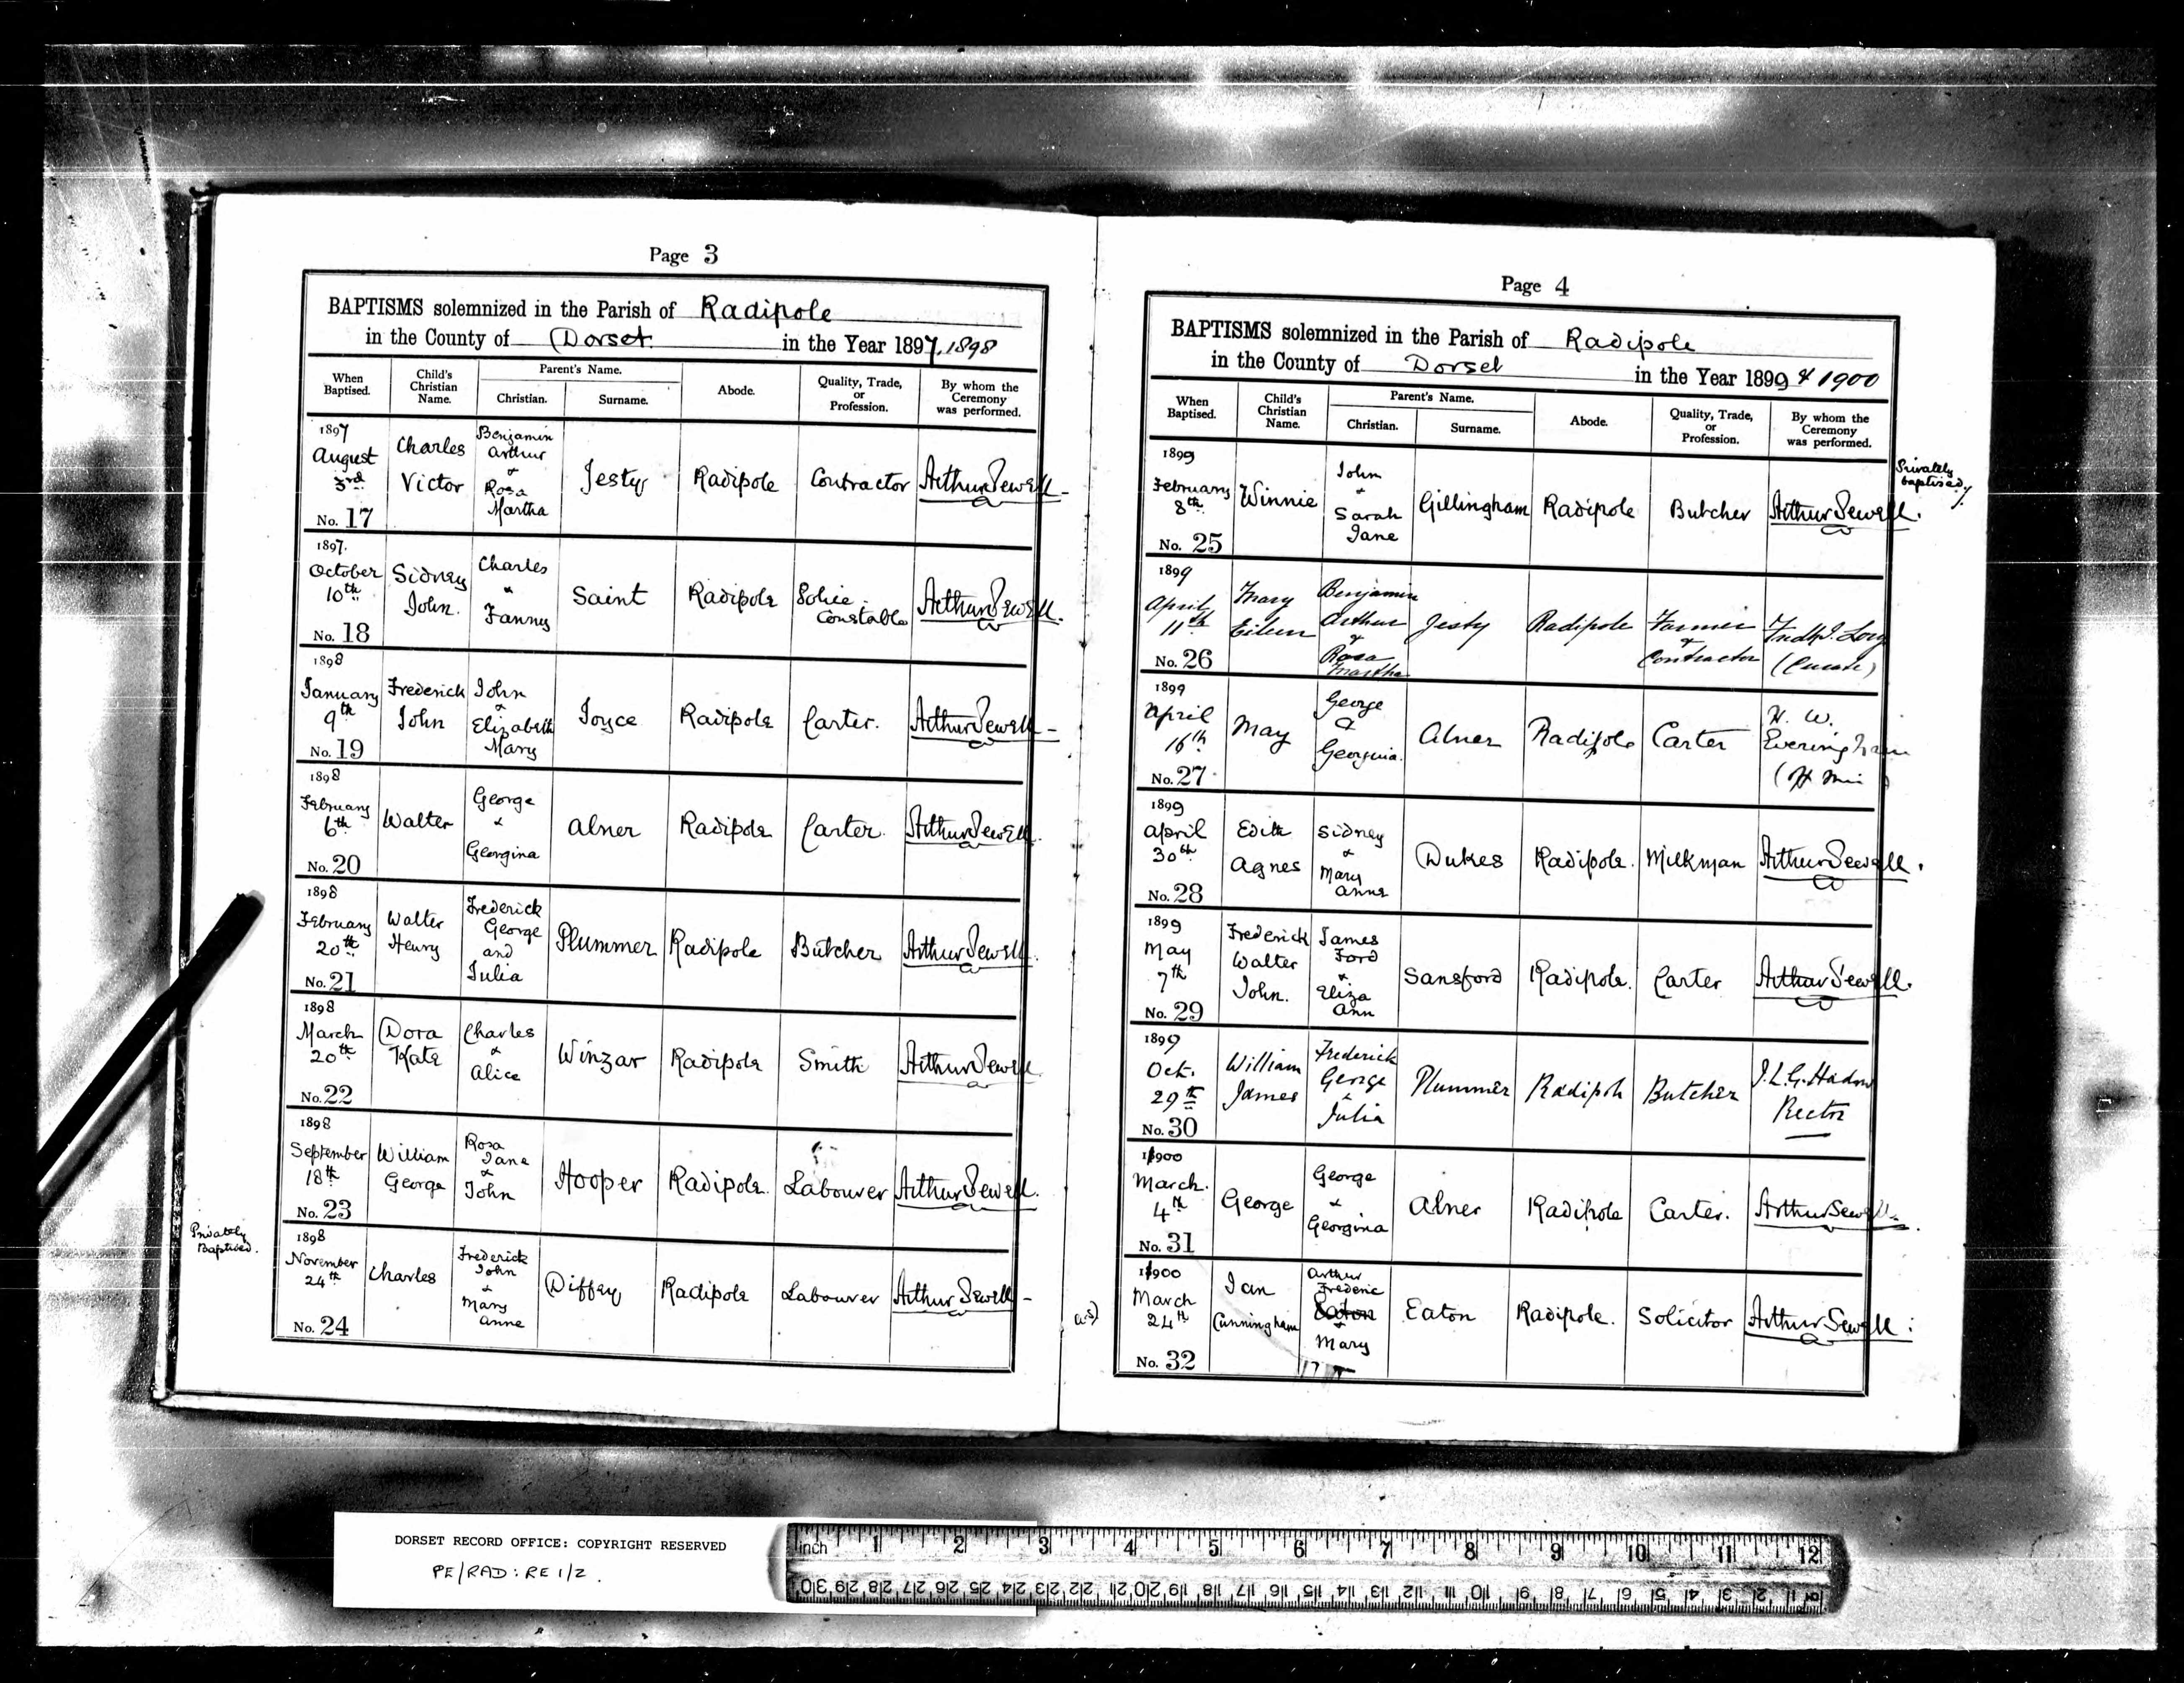 Page 3
BAPTISMS solemnized in the Parish of Radipole
in the County of Dorset in the Year 1897, 1898
When Baptised. Child's Christian Name. Parent's Name. Christian. Surname. Abode. Quality, Trade, or Profession. By whom the Ceremony was performed.
1897 August 3rd No. 17 Charles Victor Benjamin Arthur & Rosa Martha Jesty Radipole Contractor Arthur Sewell
1897. October 10th No. 18 Sidney John. Charles & Fanny Saint Radipole Police Constable Arthur Sewell.
1898 January 9th No. 19 Frederick John John & Elizabeth Mary Joyce Radipole Carter. Arthur Sewell
1898 February 6th No. 20 Walter George & Georgina Alner Radipole Carter. Arthur Sewell.
1898 February 20th No. 21 Walter Henry Frederick George and Julia Plummer Radipole Butcher Arthur Sewell.
1898 March 20th No. 22 Dora Kate Charles & Alice Winzar Radipole Smith Arthur Sewell
1898 September 18th No. 23 William George Rosa Jane & John Hooper Radipole. Labourer Arthur Sewell.
Privately Baptised.
1898 November 24th No. 24 Charles Frederick John & Mary Anne Diffey Radipole Labourer Arthur Sewell
Page 4
BAPTISMS solemnized in the Parish of Radipole
in the County of Dorset in the Year 1899 & 1900
When Baptised. Child's Christian Name. Parent's Name. Christian. Surname. Abode. Quality, Trade, or Profession. By whom the Ceremony was performed.
1899 February 8th No. 25 Winnie John & Sarah Jane Gillingham Radipole Butcher Arthur Sewell.
Privately baptised
1899 April 11th No. 26 Mary Eileen Benjamin Arthur & Rosa Martha Jesty Radipole Farmer & Contractor (Curate)
1899 April 16th No. 27 May George & Georgina. Alner Radipole Carter H. W. Everingham
1899 April 30th No. 28 Edith Agnes Sidney & Mary Anne Dukes Radipole. Milkman Arthur Sewell.
1899 May 7th No. 29 Frederick Walter John. James Ford & Eliza Ann Sansford Radipole. Carter Arthur Sewell.
1899 Oct. 29th No. 30 William James Frederick George & Julia Plummer Radipole Butcher Rector
1900 March 4th No. 31 George George & Georgina Alner Radipole Carter. Arthur Sewell.
1900 March 24th No. 32 Ian Cunningham Arthur Frederic Eaton & Mary Eaton Radipole. Solicitor Arthur Sewell.
DORSET RECORD OFFICE: COPYRIGHT RESERVED
PE/RAD: RE 1/2.
inch 1 2 3 4 5 6 7 8 9 10 11 12